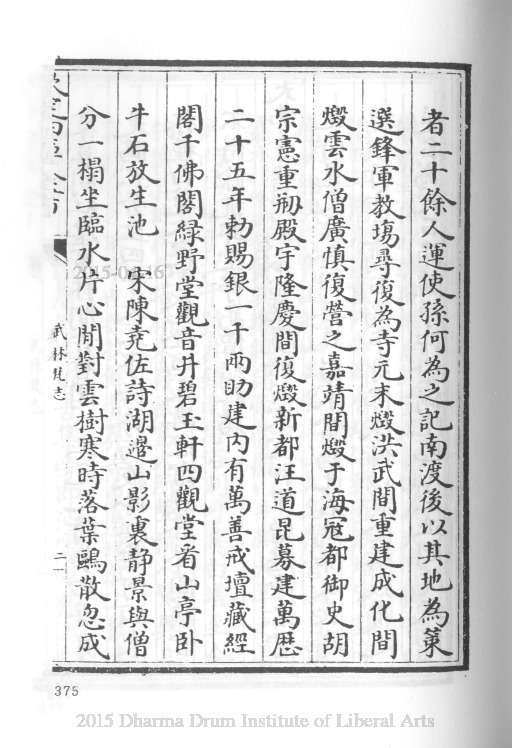 者二十餘人運使孫何為之記南渡後以其地為䇿
選鋒軍教塲尋復為寺元末燬洪武間重建成化間
燬雲水僧廣慎復營之嘉靖間燬于海冦都御史胡
宗憲重剏殿宇隆慶間復燬新都汪道昆募建萬厯
二十五年勅賜銀一千兩助建内有萬善戒壇藏經
閣千佛閣緑野堂觀音井碧玉軒四觀堂看山亭卧
牛石放生池 宋陳堯佐詩湖邊山影裏静景與僧
分一榻坐臨水片心閒對雲樹寒時落葉鷗散忽成
武林梵志
二
375
2015 Dharma Drum Institute of Liberal Arts